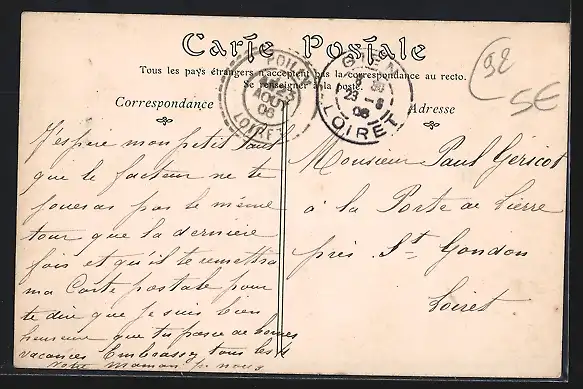 Carte Postale
Tous les pays étrangers n'acceptent pas la correspondance au recto.
Se renseigner à la poste.
Correspondance
Adresse
POILLY
AOUT
06
LOIRET
GIEN
8 30
23 - 8
06
LOIRET
92
5E
J'espère mon petit Paul
que le facteur ne te
jouera pas le même
tour que la dernière
fois et qu'il te remettra
ma Carte postale pour
te dire que je suis bien
heureuse que tu passe de bonnes
vacances Embrassez tous les 4
votre maman pour nous
Monsieur Paul Gericot
à la Porte de Pierre
près St Gondon
Loiret